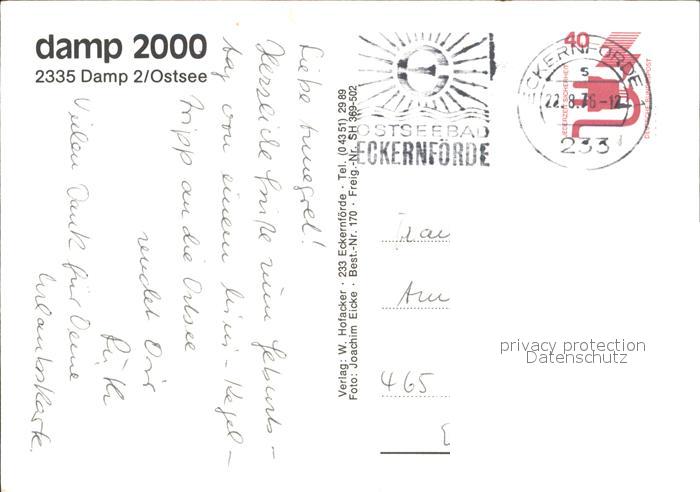 damp 2000
2335 Damp 2/Ostsee
Liebe Annegret!
Herzliche Grüße zum Geburts-
tag von einem Mini-Kegel-
tripp an die Ostsee
sendet Dir
Vielen Dank für Deine
Urlaubskarte.
Verlag: W. Hofacker · 233 Eckernförde · Tel. (04351) 2989
Foto: Joachim Eicke · Best.-Nr. 170 · Freig.-Nr. SH 369-502
OSTSEEBAD
ECKERNFÖRDE
ECKERNFÖRDE 1
s
22.8.76-12
233
40
JEDERZEIT SICHERHEIT
DEUTSCHE BUNDESPOST
Frau
Am
465
privacy protection
Datenschutz